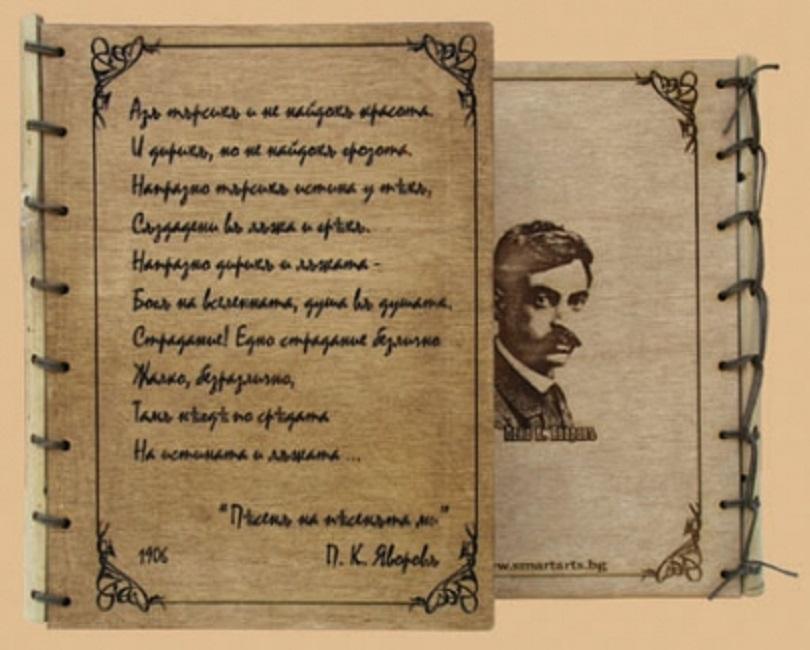 Азъ търсихъ и не найдохъ красота.
И дирихъ, но не найдохъ грозота.
Напразно търсихъ истина у тѣхъ,
Създадени въ лъжа и грѣхъ.
Напразно дирихъ и лъжата -
Богъ на вселенната, душа въ душата.
Страдание! Едно страдание безлично
Жалко, безразлично,
Тамъ нѣгдѣ по срѣдата
На истината и лъжата ...
"Пѣсенъ на пѣсеньта ми"
1906 П. К. Яворовъ
www.smartarts.bg